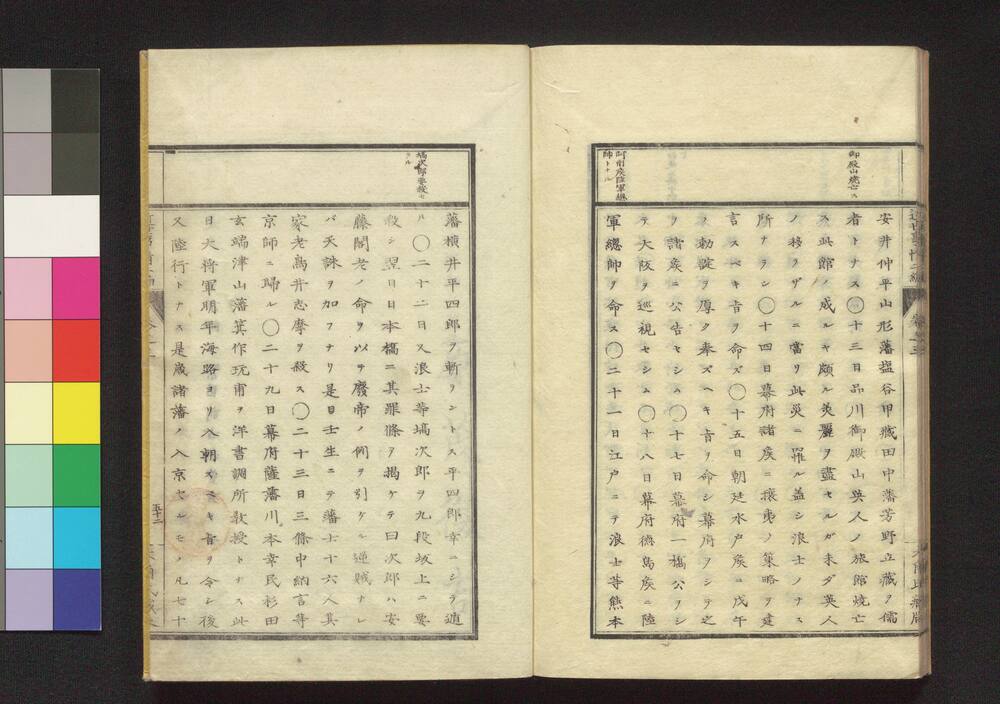 御殿山燒亡ス
安井仲平山形藩塩谷甲藏田中藩芳野立藏ヲ儒
者トナス〇十三日品川御殿山異人ノ旅館燒亡
ス此館ノ成ルキ頗ル美麗ヲ盡セルガ未ダ英人
ノ移ラザルニ當リ此災ニ罹ル蓋シ浪士ノナス
所ナラン〇十四日幕府諸矦ニ攘夷ノ策略ヲ建
言スベキ旨ヲ命ズ〇十五日朝廷水戸矦ニ戊午
ノ勅諚ヲ厚ク奉ズヘキ旨ヲ命シ幕府ヲシテ之
ヲ諸矦ニ公告セシム〇十七日幕府一橋公ヲシ
テ大阪ヲ巡視セシム〇十八日幕府徳島矦ニ陸
軍總帥ヲ命ス〇二十一日江戸ニテ浪士等熊本
阿州矦陸軍總
帥トナル
塙次郎要殺セ
ラル
藩横井平四郎ヲ斬ラントス平四郎幸ニシテ遁
ル〇二十二日又浪士等塙次郎ヲ九段坂上ニ要
殺シ翌日日本橋ニ其罪條ヲ揭ケテ曰次郎ハ安
藤閣老ノ命ヲ以テ廢帝ノ例ヲ引ケル逆賊ナレ
バ天誅ヲ加フナリ是日壬生ニテ藩士十六人其
家老鳥井志摩ヲ殺ス〇二十三日三條中納言等
京師ニ歸ル〇二十九日幕府薩藩川本幸民杉田
玄端津山藩箕作玩甫ヲ洋書調所敎授トナス此
日大將軍明年海路ヨリ入朝スヘキ旨ヲ令シ後
又陸行トナス是歲諸藩ノ入京セルモノ凡七十
五十二